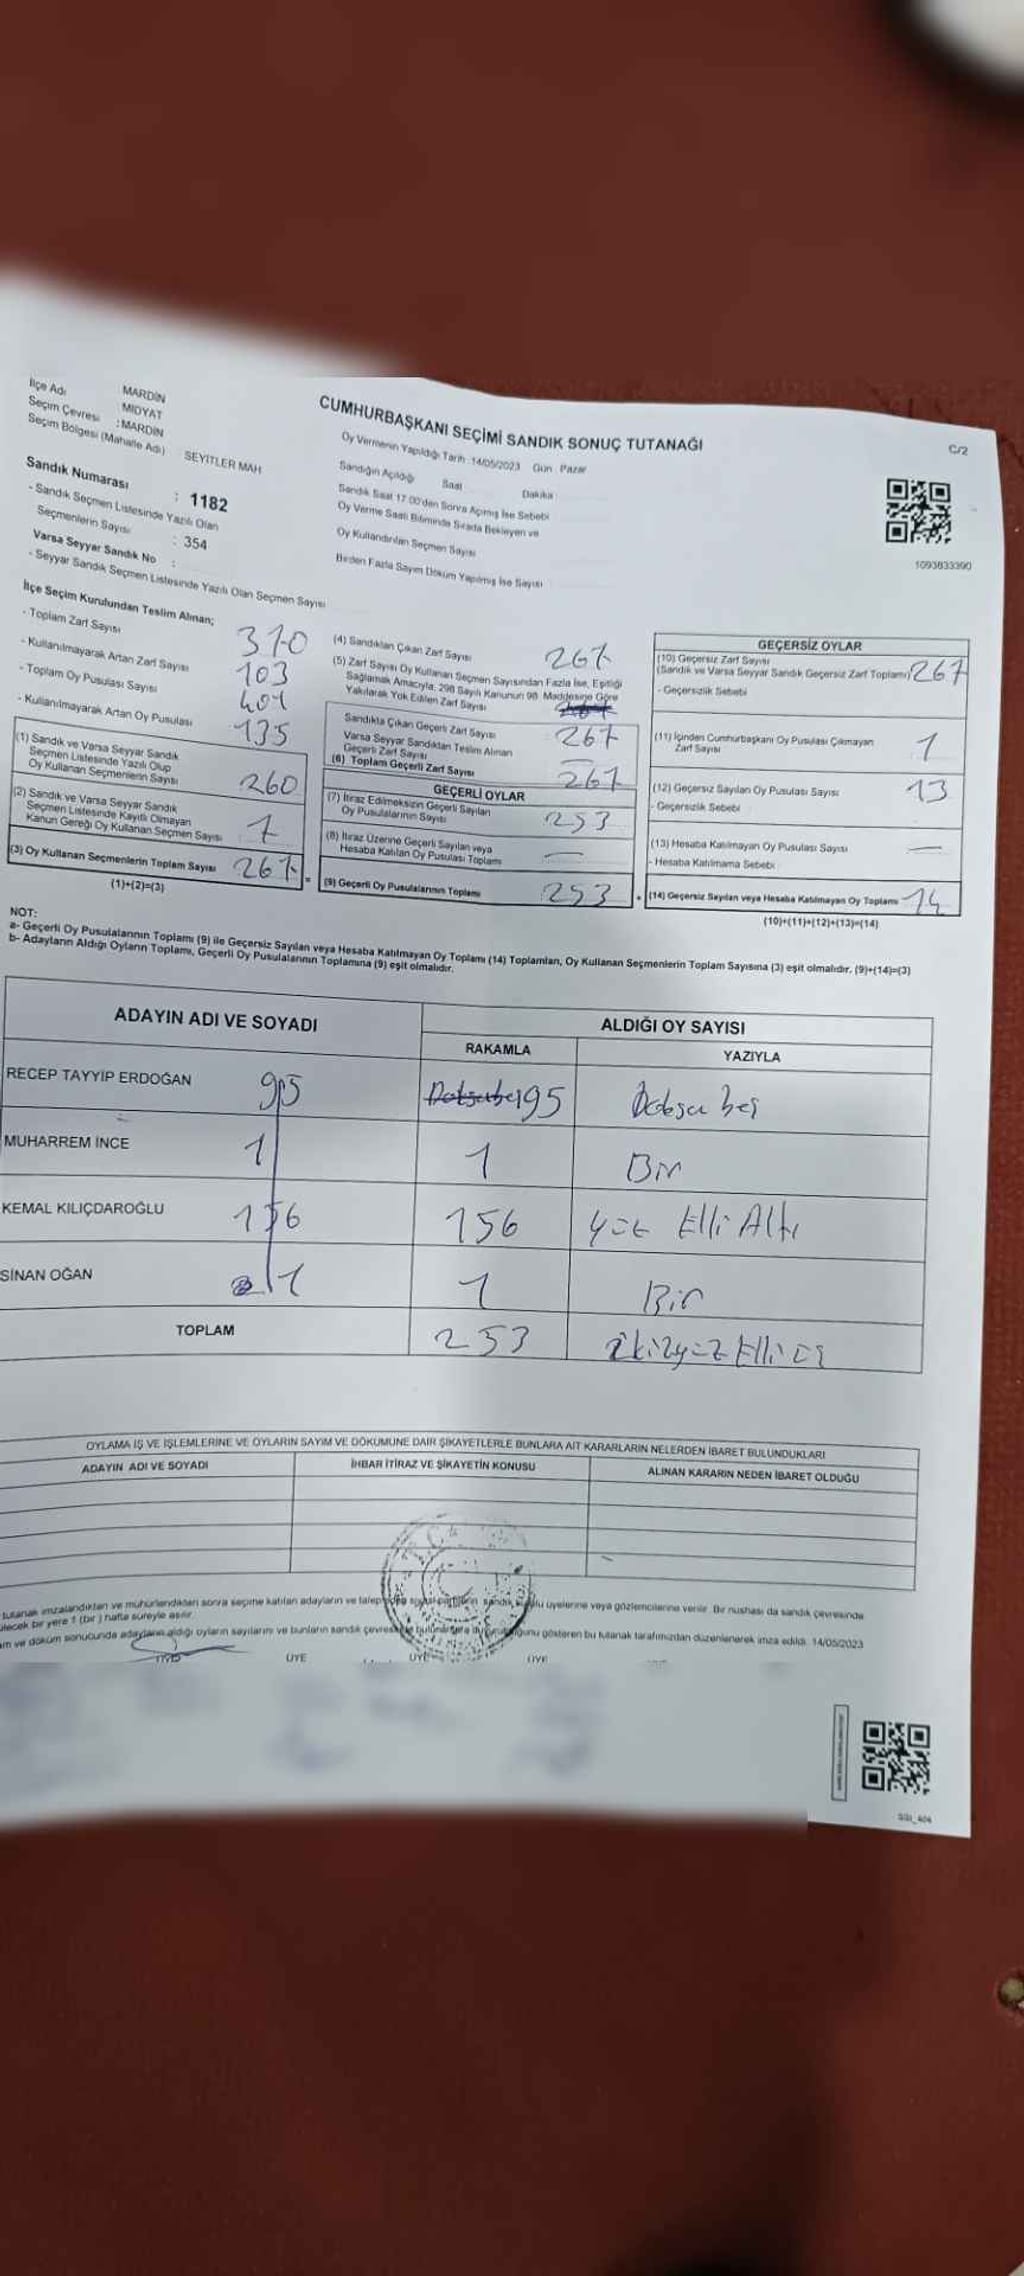 İlçe Adı MARDİN
Seçim Çevresi : MİDYAT
Seçim Bölgesi (Mahalle Adı) : MARDİN
SEYİTLER MAH
Sandık Numarası : 1182
- Sandık Seçmen Listesinde Yazılı Olan
Seçmenlerin Sayısı : 354
Varsa Seyyar Sandık No :
- Seyyar Sandık Seçmen Listesinde Yazılı Olan Seçmen Sayısı
CUMHURBAŞKANI SEÇİMİ SANDIK SONUÇ TUTANAĞI
Oy Vermenin Yapıldığı Tarih :14/05/2023 Gün : Pazar
Sandığın Açıldığı Saat Dakika
Sandık Saat 17.00'den Sonra Açılmış İse Sebebi
Oy Verme Saati Bitiminde Sırada Bekleyen ve
Oy Kullandırılan Seçmen Sayısı
Birden Fazla Sayım Döküm Yapılmış İse Sayısı
C/2
1093833390
İlçe Seçim Kurulundan Teslim Alınan;
- Toplam Zarf Sayısı 370
- Kullanılmayarak Artan Zarf Sayısı 103
- Toplam Oy Pusulası Sayısı 401
- Kullanılmayarak Artan Oy Pusulası 135
(1) Sandık ve Varsa Seyyar Sandık
Seçmen Listesinde Yazılı Olup
Oy Kullanan Seçmenlerin Sayısı 260
(2) Sandık ve Varsa Seyyar Sandık
Seçmen Listesinde Kayıtlı Olmayan
Kanun Gereği Oy Kullanan Seçmen Sayısı 7
(3) Oy Kullanan Seçmenlerin Toplam Sayısı 267 =
(1)+(2)=(3)
(4) Sandıktan Çıkan Zarf Sayısı 267
(5) Zarf Sayısı Oy Kullanan Seçmen Sayısından Fazla İse, Eşitliği
Sağlamak Amacıyla, 298 Sayılı Kanunun 98. Maddesine Göre
Yakılarak Yok Edilen Zarf Sayısı
Sandıkta Çıkan Geçerli Zarf Sayısı 267
Varsa Seyyar Sandıktan Teslim Alınan
Geçerli Zarf Sayısı —
(6) Toplam Geçerli Zarf Sayısı 267
GEÇERLİ OYLAR
(7) İtiraz Edilmeksizin Geçerli Sayılan
Oy Pusulalarının Sayısı 253
(8) İtiraz Üzerine Geçerli Sayılan veya
Hesaba Katılan Oy Pusulası Toplamı —
(9) Geçerli Oy Pusulalarının Toplamı 253 +
GEÇERSİZ OYLAR
(10) Geçersiz Zarf Sayısı
(Sandık ve Varsa Seyyar Sandık Geçersiz Zarf Toplamı) 267
- Geçersizlik Sebebi
(11) İçinden Cumhurbaşkanı Oy Pusulası Çıkmayan
Zarf Sayısı 1
(12) Geçersiz Sayılan Oy Pusulası Sayısı 13
- Geçersizlik Sebebi
(13) Hesaba Katılmayan Oy Pusulası Sayısı —
- Hesaba Katılmama Sebebi
(14) Geçersiz Sayılan veya Hesaba Katılmayan Oy Toplamı 14
(10)+(11)+(12)+(13)=(14)
NOT:
a- Geçerli Oy Pusulalarının Toplamı (9) ile Geçersiz Sayılan veya Hesaba Katılmayan Oy Toplamı (14) Toplamları, Oy Kullanan Seçmenlerin Toplam Sayısına (3) eşit olmalıdır. (9)+(14)=(3)
b- Adayların Aldığı Oyların Toplamı, Geçerli Oy Pusulalarının Toplamına (9) eşit olmalıdır.
ADAYIN ADI VE SOYADI ALDIĞI OY SAYISI
RAKAMLA YAZIYLA
RECEP TAYYİP ERDOĞAN 95 95 Doksa beş
MUHARREM İNCE 1 1 Bir
KEMAL KILIÇDAROĞLU 156 156 yüz Elli Altı
SİNAN OĞAN 1 1 Bir
TOPLAM 253 ikiyüz Elli üç
OYLAMA İŞ VE İŞLEMLERİNE VE OYLARIN SAYIM VE DÖKÜMÜNE DAİR ŞİKAYETLERLE BUNLARA AİT KARARLARIN NELERDEN İBARET BULUNDUKLARI
ADAYIN ADI VE SOYADI İHBAR İTİRAZ VE ŞİKAYETİN KONUSU ALINAN KARARIN NEDEN İBARET OLDUĞU
tutanak imzalandıktan ve mühürlendikten sonra seçime katılan adayların ve talep siyasi partilerin sandık kurulu üyelerine veya gözlemcilerine verilir. Bir nüshası da sandık çevresinde
bir yere 1 (bir) hafta süreyle asılır.
ve döküm sonucunda adayların aldığı oyların sayılarını ve bunların sandık gösteren bu tutanak tarafımızdan düzenlenerek imza edildi. 14/05/2023
ÜYE ÜYE ÜYE